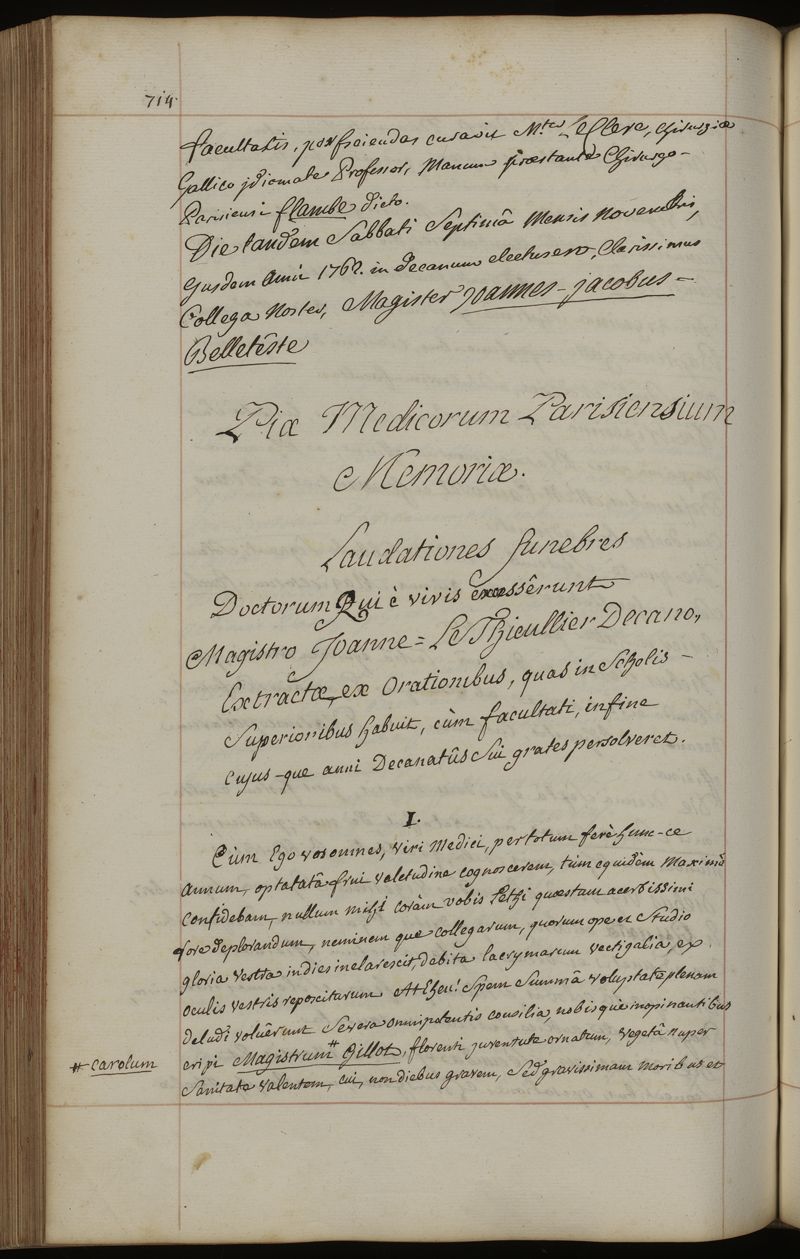 714.
facultatis, perficiendas curavit M.ter Le Clerc, chirurgiæ
Gallico idiomate Professor, Manum præstante Chirurgo-
Parisiensi flambe dicto.
Die tandem Sabbati Septimâ Mensis Novembris,
Ejusdem Anni 1762. in Decanum electus est, Clarissimus
Collega Noster, Magister Joannes-jacobus-
Belletêste
Piæ Medicorum Parisiensium
Memoriæ.
Laudationes funebres
Doctorum Qui è vivis excessêrunt
Magistro Joanne = Le Thieullier Decano,
Extractæ, ex Orationibus, quas in Scholis-
Superioribus habuit, cùm facultati, in fine
Cujus-que anni Decanatûs Sui grates persolveret.
I.
Cùm Ego vos omnes, Viri Medici, per totum ferè hunc-ce
annum, optatatâ frui valetudine cognoscerem, tùm equidèm Maximè
Confidebam, nullum mihi coràm vobis Lethi quæstum acerbissimi
fore deplorandum, neminem que collegarum, quorum ope et Studio
gloria vestra indies inclarescit, debita lacrymarum vectigalia, ex
oculis vestris reposciturum. At Eheu! Spem Summâ voluptate plenam
deludi voluêrunt Severa omnipotentis consilia, nobisque inopinantibus
eripi Magistrum # Gillot, florenti juventute ornatum, vegetâ nuper
# Carolum
Sanitate valentem, cui, non diebus gravem, Sed gravissimam moribus et